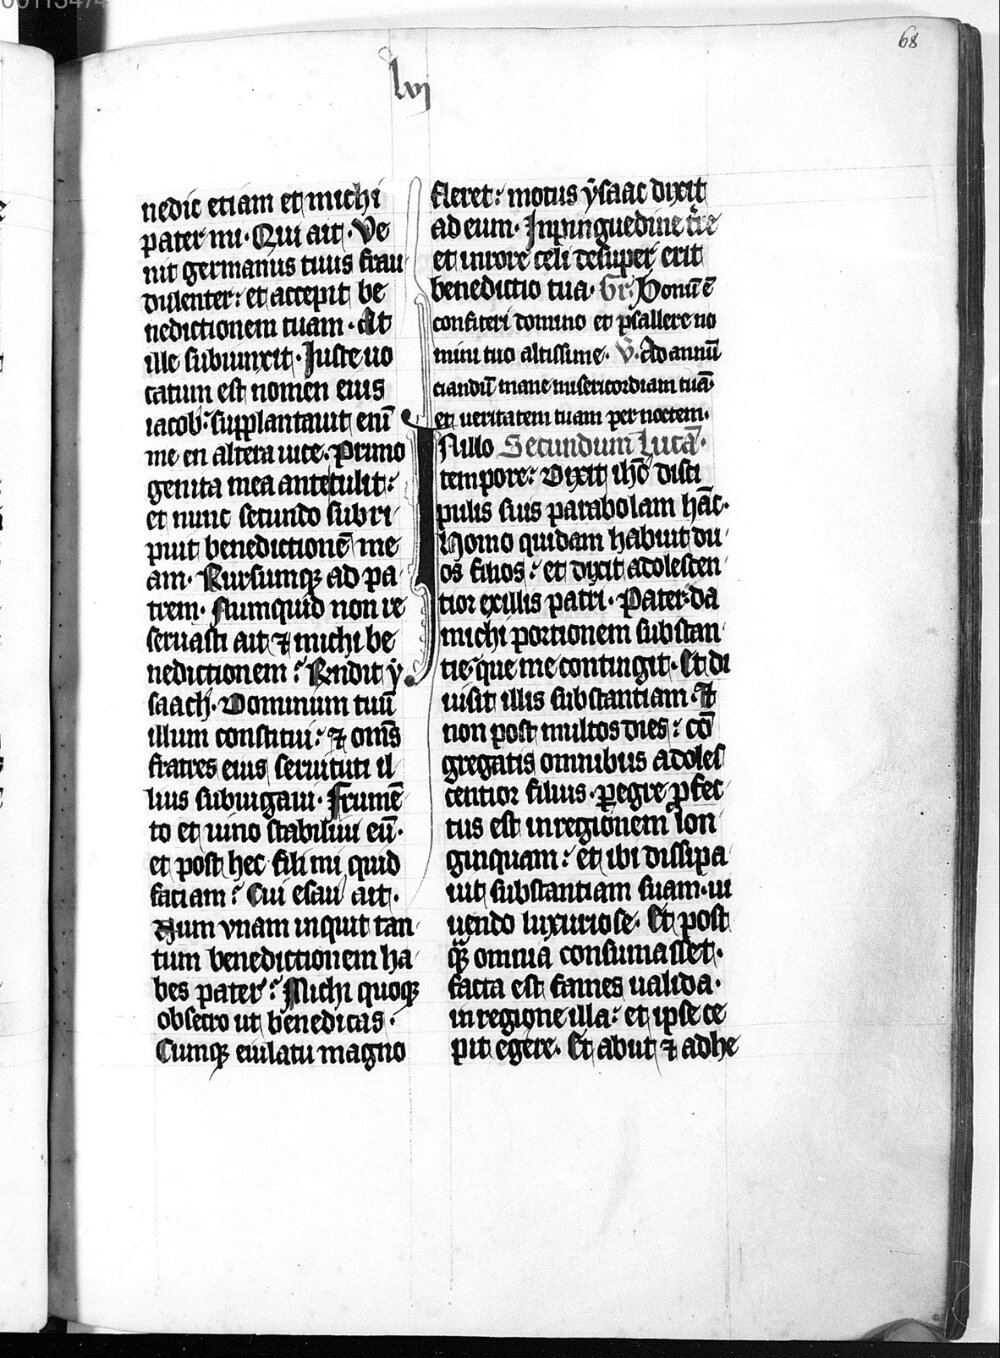 68
lvj
nedic etiam et michi
pater mi. Qui ait. Ve
nit germanus tuus frau
dulenter: et accepit be
nedictionem tuam. At
ille subiunxit. Juste uo
catum est nomen eius
iacob. supplantauit eni̅
me en altera uice. Primo
genita mea ante tulit:
et nunc secundo surri
puit benedictione̅ me
am. Rursumqꝫ ad pa
trem. Numquid non re
seruasti ait ⁊ michi be
nedictionem? Rn̅dit ẏ
saach. Dominum tuu̅
illum constitui: ⁊ om̅s
fratres eius seruituti il
lius subiugaui. Frume̅
to et uino stabiliui eu̅.
et post hec fili mi quid
faciam? Cui esau ait.
Num vnam inquit tan
tum benedictionem ha
bes pater? Michi quoqꝫ
obsecro ut benedicas.
Cumqꝫ eiulatu magno
fleret: motus ẏsaac dixit
ad eum. Jnpinguedine tr̅e
et inrore celi desuper erit
benedictio tua. Gr̅. Bonu̅ e̅
confiteri domino et psallere no
mini tuo altissime. V̅. Ad annu̅
ciandu̅ mane misericordiam tua̅
et ueritatem tuam per noctem.
JNillo Secundum Luca̅.
tempore: Dixit ihc̅ disci
pulis suis parabolam ha̅c.
Homo quidam habuit du
os filios: et dixit adolescen
tior exillis patri. Pater da
michi portionem substan
tie que me contingit. Et di
uisit illis substantiam. Et
non post multos dies: co̅
gregatis omnibus adoles
centior filius. ꝑegre ꝓfec
tus est inregionem lon
ginquam: et ibi dissipa
uit substantiam suam. ui
uendo luxuriose. Et post
qꝫ omnia consumasset.
facta est fames ualida.
inregione illa: et ipse ce
pit egere. Et abiit ⁊ adhe